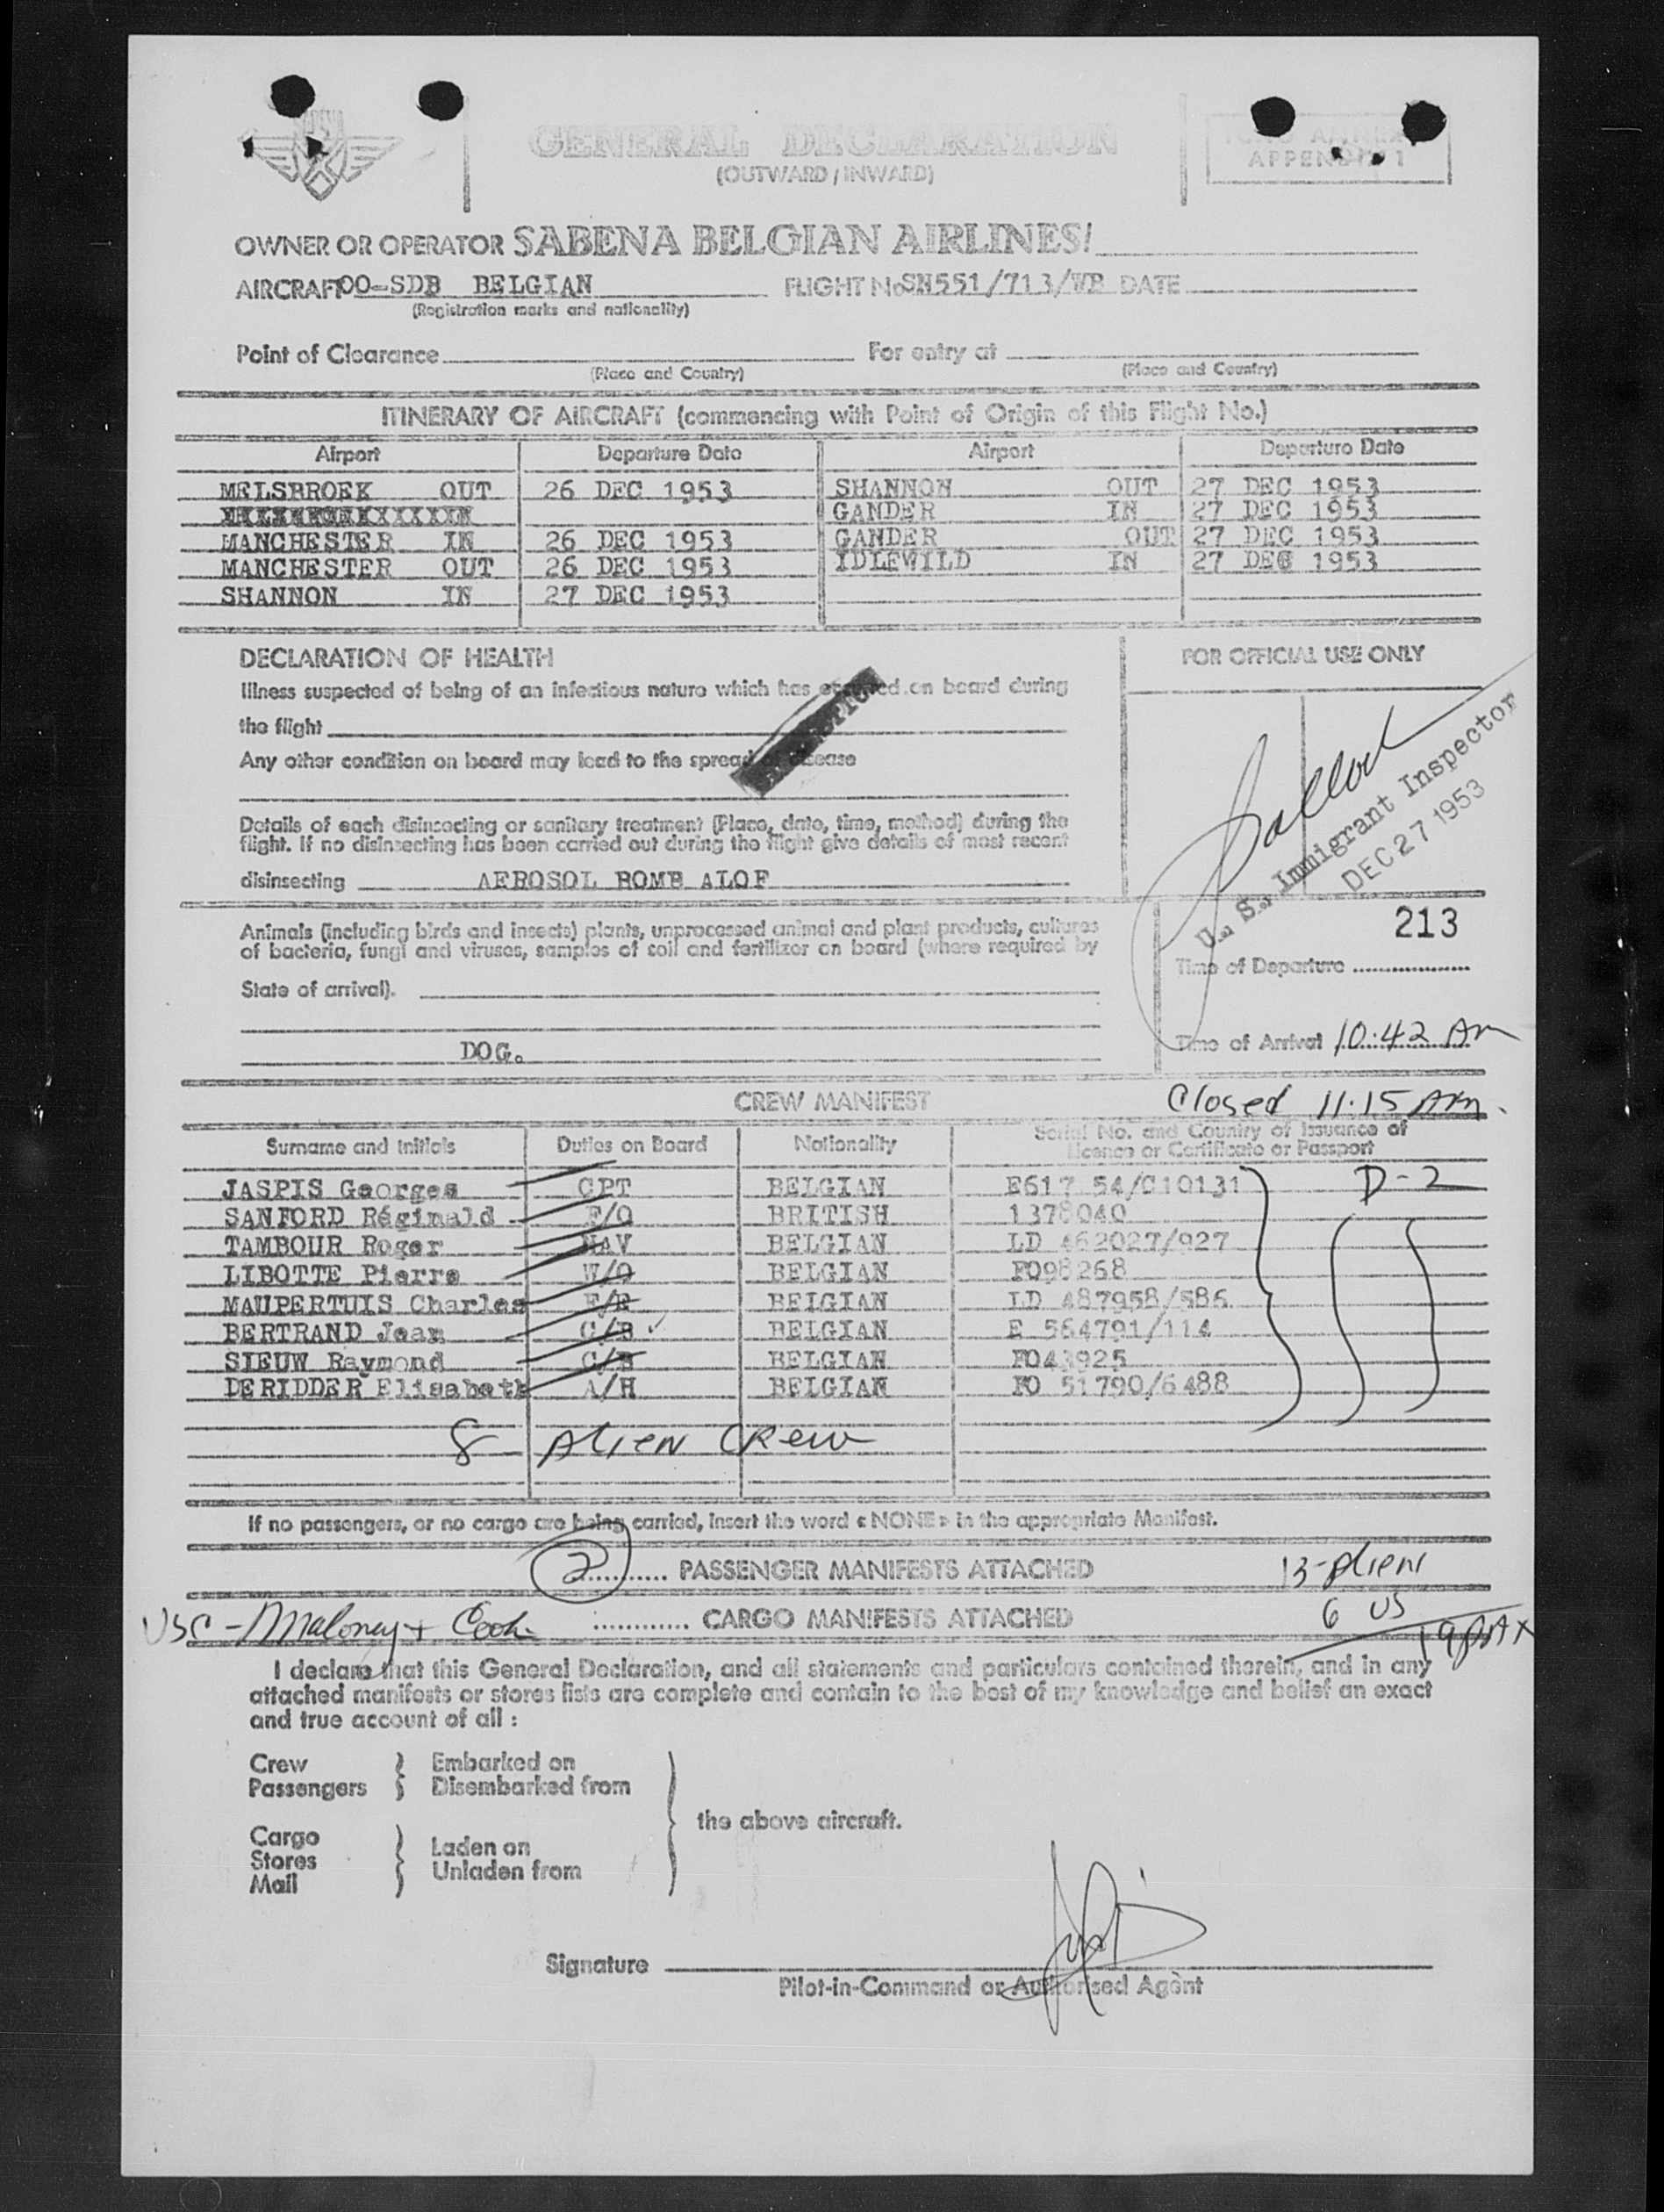 GENERAL DECLARATION
(OUTWARD / INWARD)
APPENDIX 1
OWNER OR OPERATOR SABENA BELGIAN AIRLINES!
AIRCRAFT OO-SDB BELGIAN FLIGHT No SN551/713/WB DATE
(Registration marks and nationality)
Point of Clearance For entry at
(Place and Country) (Place and Country)
ITINERARY OF AIRCRAFT (commencing with Point of Origin of this Flight No.)
Airport Departure Date Airport Departure Date
MELSBROEK OUT 26 DEC 1953 SHANNON OUT 27 DEC 1953
GANDER IN 27 DEC 1953
MANCHESTER IN 26 DEC 1953 GANDER OUT 27 DEC 1953
MANCHESTER OUT 26 DEC 1953 IDLEWILD IN 27 DEC 1953
SHANNON IN 27 DEC 1953
DECLARATION OF HEALTH FOR OFFICIAL USE ONLY
Illness suspected of being of an infectious nature which has occurred on board during
the flight
Any other condition on board may lead to the spread of disease
U. S. Immigrant Inspector
DEC 27 1953
Details of each disinsecting or sanitary treatment (Place, date, time, method) during the
flight. If no disinsecting has been carried out during the flight give details of most recent
disinsecting AEROSOL BOMB ALOF
213
Animals (including birds and insects) plants, unprocessed animal and plant products, cultures
of bacteria, fungi and viruses, samples of soil and fertilizer on board (where required by
State of arrival).
Time of Departure
DOG.
Time of Arrival 10:42 Am
CREW MANIFEST Closed 11.15 Am.
Surname and Initials Duties on Board Nationality Serial No. and Country of Issuance of
Licence or Certificate or Passport
JASPIS Georges CPT BELGIAN E617 54/C10131 D-2
SANFORD Réginald F/O BRITISH 1378040
TAMBOUR Roger NAV BELGIAN LD 462027/927
LIBOTTE Pierre W/O BELGIAN F098268
MAUPERTUIS Charles F/E BELGIAN LD 487958/586
BERTRAND Jean C/B BELGIAN E 564791/114
SIEUW Raymond C/B BELGIAN F043925
DERIDDER Elisabeth A/H BELGIAN FO 51790/6488
8 Alien Crew
If no passengers, or no cargo are being carried, insert the word « NONE » in the appropriate Manifest.
2 PASSENGER MANIFESTS ATTACHED 13-Alien
USC - Maloney + Cook CARGO MANIFESTS ATTACHED 6 US
19 PAX
I declare that this General Declaration, and all statements and particulars contained therein, and in any
attached manifests or stores lists are complete and contain to the best of my knowledge and belief an exact
and true account of all :
Crew Embarked on
Passengers Disembarked from
the above aircraft.
Cargo
Stores Laden on
Mail Unladen from
Signature
Pilot-in-Command or Authorised Agent